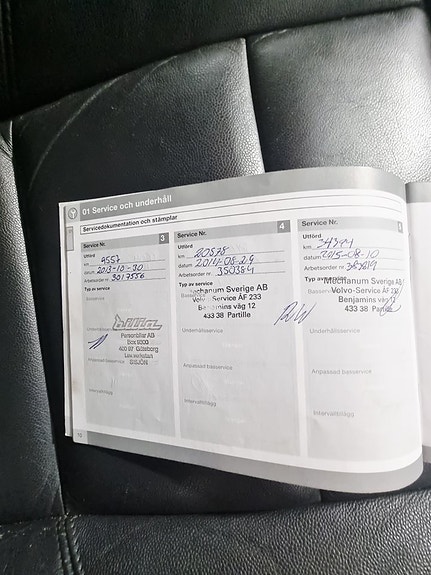 01 Service och underhåll
Servicedokumentation och stämplar
Service Nr. 3
Utförd
km 9557
datum 2013-10-30
Arbetsorder nr.
Typ av service
Basservice
Underhållsservice
bilia
Personbilar AB
Box 9303
400 97 Göteborg
Lev.verkstan
SISJÖN
Anpassad basservice
Intervalltillägg
10
Service Nr. 4
Utförd
km 20578
datum 2014-08-29
Arbetsorder nr. 350384
Typ av service
Mechanum Sverige AB
Volvo-Service ÅF 233
Benjamins väg 12
433 38 Partille
Underhållsservice
Anpassad basservice
Intervalltillägg
Service Nr.
Utförd
km
datum 2015-08-10
Arbetsorder nr.
Typ av service
Mechanum Sverige AB
Volvo-Service ÅF
Benjamins väg 12
433 38 Partille
Underhållsservice
Anpassad basservice
Intervalltillägg